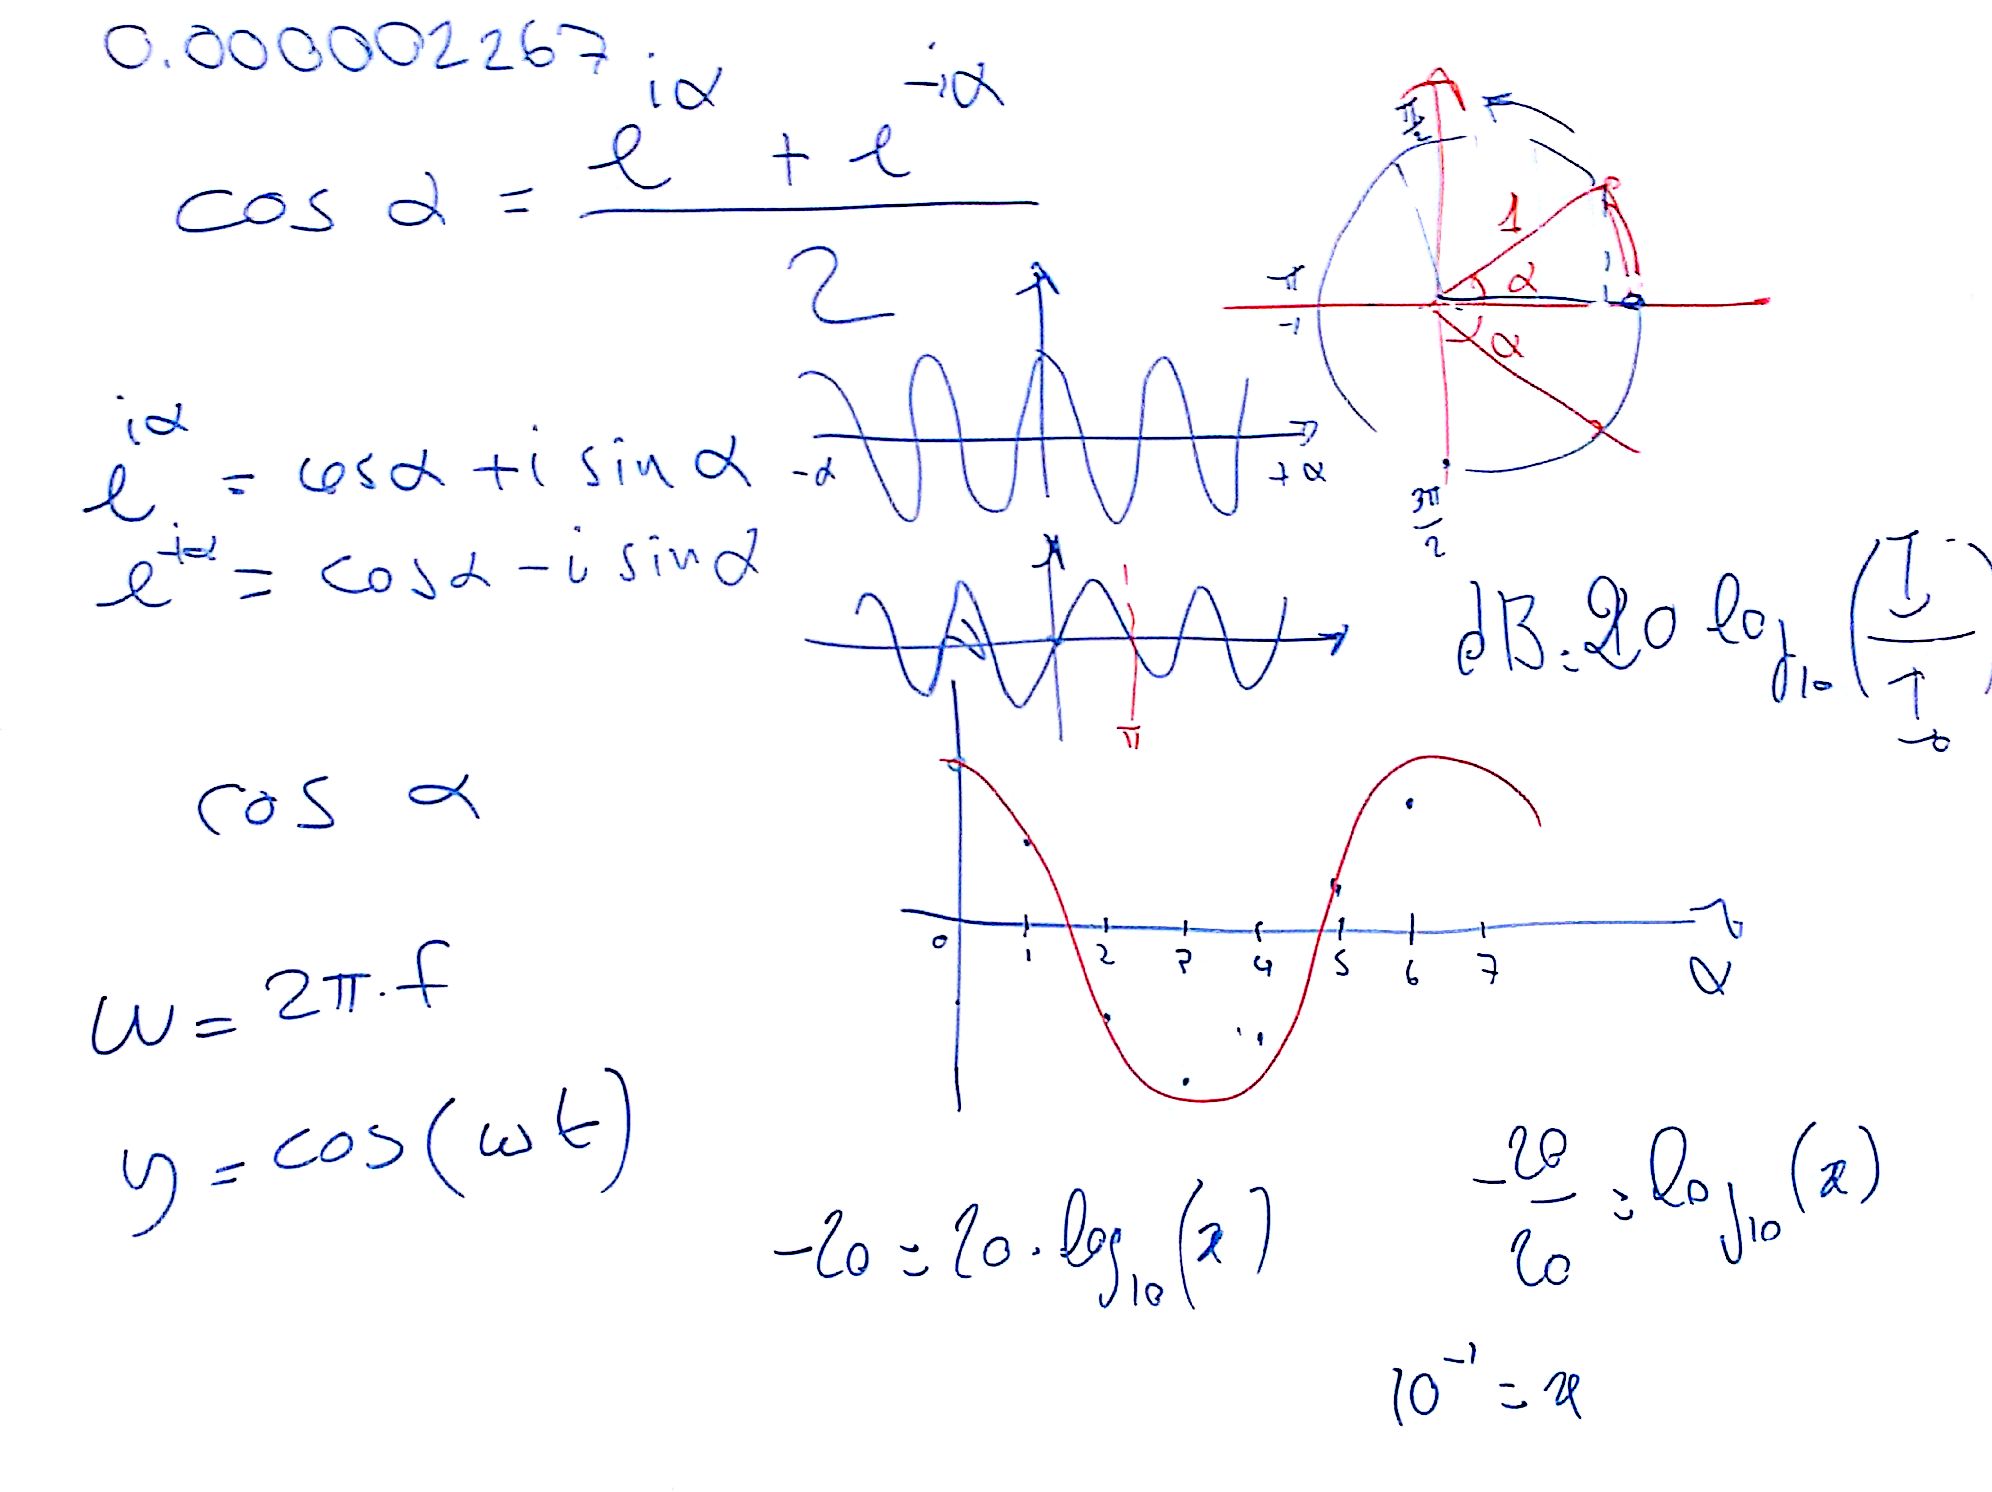 0.000002267
cos α = (e^{iα} + e^{-iα}) / 2
π/2
1
α
-π
-1
α
3π/2
-α
+α
e^{iα} = cosα + i sin α
e^{-iα} = cosα - i sinα
π
dB = 20 log₁₀ (I / I₀)
cos α
0 1 2 3 4 5 6 7
α
ω = 2π.f
y = cos(ωt)
-20 = 20 . log₁₀(x)
-20/20 = log₁₀(x)
10⁻¹ = x